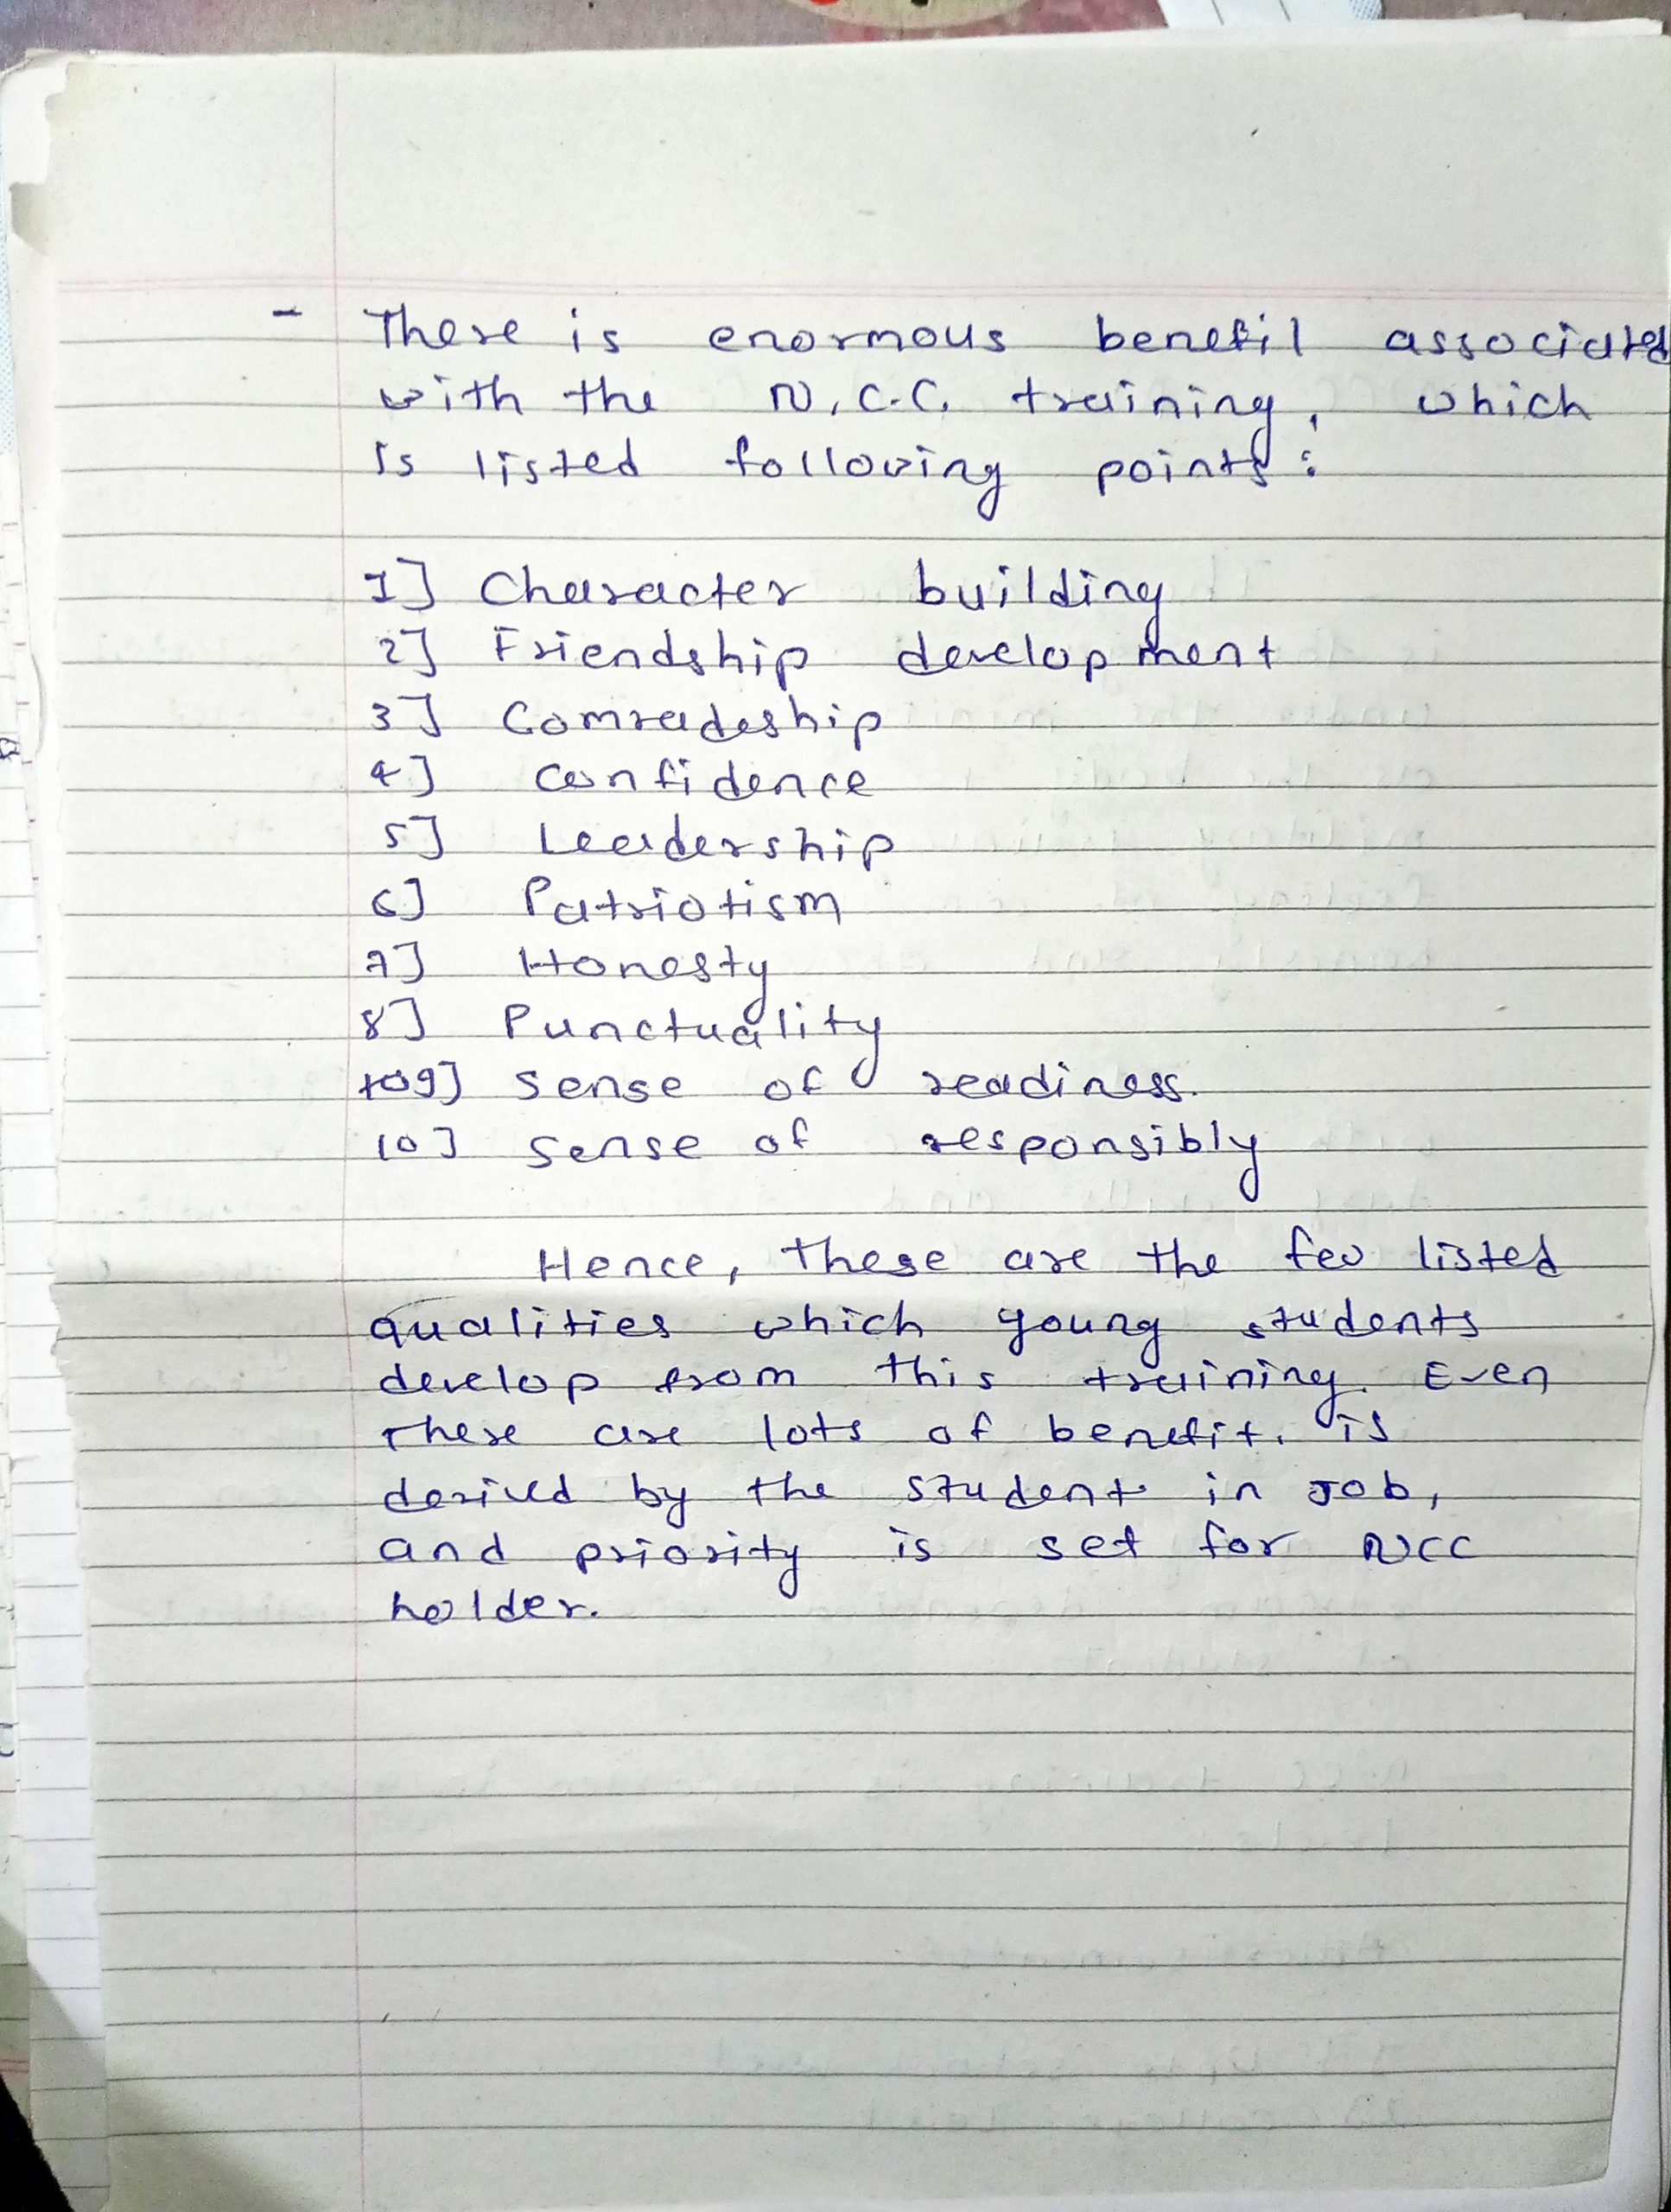 - There is enormous benefit associated
with the N.C.C. training, which
is listed following points :
1] Character building
2] Friendship development
3] Comradeship
4] confidence
5] Leadership
6] Patriotism
7] Honesty
8] Punctuality
9] sense of readiness.
10] sense of responsibly
Hence, these are the few listed
qualities which young students
develop from this training. Even
there are lots of benefit. is
derived by the student in Job,
and priority is set for NCC
holder.